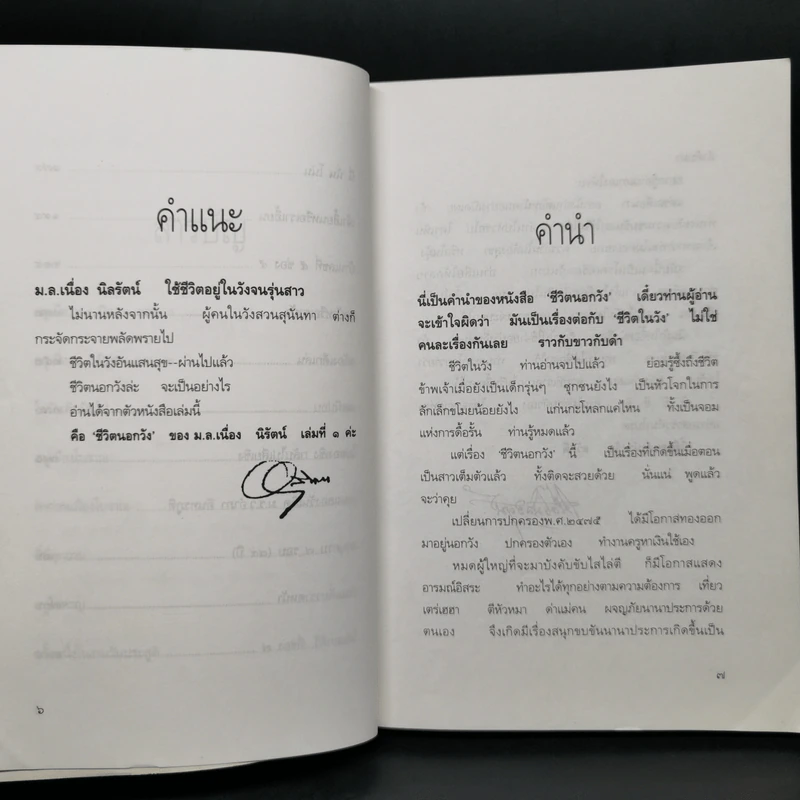 คำแนะ
ม.ล.เนื่อง นิลรัตน์ ใช้ชีวิตอยู่ในวังจนรุ่นสาว
ไม่นานหลังจากนั้น ผู้คนในวังสวนสุนันทา ต่างก็
กระจัดกระจายพลัดพรายไป
ชีวิตในวังอันแสนสุข--ผ่านไปแล้ว
ชีวิตนอกวังล่ะ จะเป็นอย่างไร
อ่านได้จากตัวหนังสือเล่มนี้
คือ ‘ชีวิตนอกวัง’ ของ ม.ล.เนื่อง นิรัตน์ เล่มที่ ๑ ค่ะ
๖
คำนำ
นี่เป็นคำนำของหนังสือ ‘ชีวิตนอกวัง’ เดี๋ยวท่านผู้อ่าน
จะเข้าใจผิดว่า มันเป็นเรื่องต่อกับ ‘ชีวิตในวัง’ ไม่ใช่
คนละเรื่องกันเลย ราวกับขาวกับดำ
ชีวิตในวัง ท่านอ่านจบไปแล้ว ย่อมรู้ซึ้งถึงชีวิต
ข้าพเจ้าเมื่อยังเป็นเด็กรุ่นๆ ซุกซนยังไง เป็นหัวโจกในการ
ลักเล็กขโมยน้อยยังไง แก่นกะโหลกแค่ไหน ทั้งเป็นจอม
แห่งการดื้อรั้น ท่านรู้หมดแล้ว
แต่เรื่อง ‘ชีวิตนอกวัง’ นี้ เป็นเรื่องที่เกิดขึ้นเมื่อตอน
เป็นสาวเต็มตัวแล้ว ทั้งติดจะสวยด้วย นั่นแน่ พูดแล้ว
จะว่าคุย
เปลี่ยนการปกครองพ.ศ.๒๔๗๕ ได้มีโอกาสทองออก
มาอยู่นอกวัง ปกครองตัวเอง ทำงานครูหาเงินใช้เอง
หมดผู้ใหญ่ที่จะมาบังคับขับไสไล่ตี ก็มีโอกาสแสดง
อารมณ์อิสระ ทำอะไรได้ทุกอย่างตามความต้องการ เที่ยว
เตร่เฮฮา ตีหัวหมา ด่าแม่คน ผจญภัยนานาประการด้วย
ตนเอง จึงเกิดมีเรื่องสนุกขบขันนานาประการเกิดขึ้นเป็น
๗